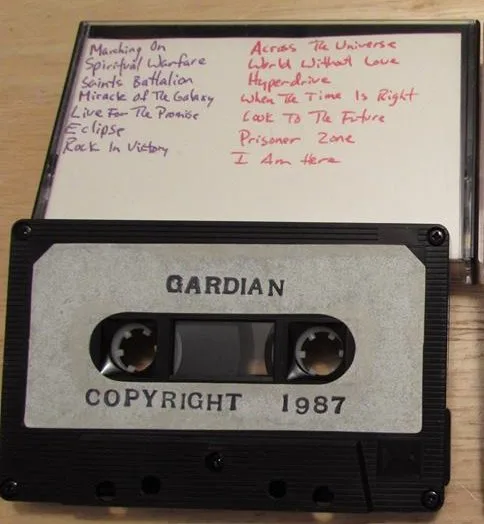 Marching On
Spiritual Warfare
Saints Battalion
Miracle Of The Galaxy
Live For The Promise
Eclipse
Rock In Victory
Across The Universe
World Without Love
Hyperdrive
When The Time Is Right
Look To The Future
Prisoner Zone
I Am Here
GARDIAN
COPYRIGHT 1987